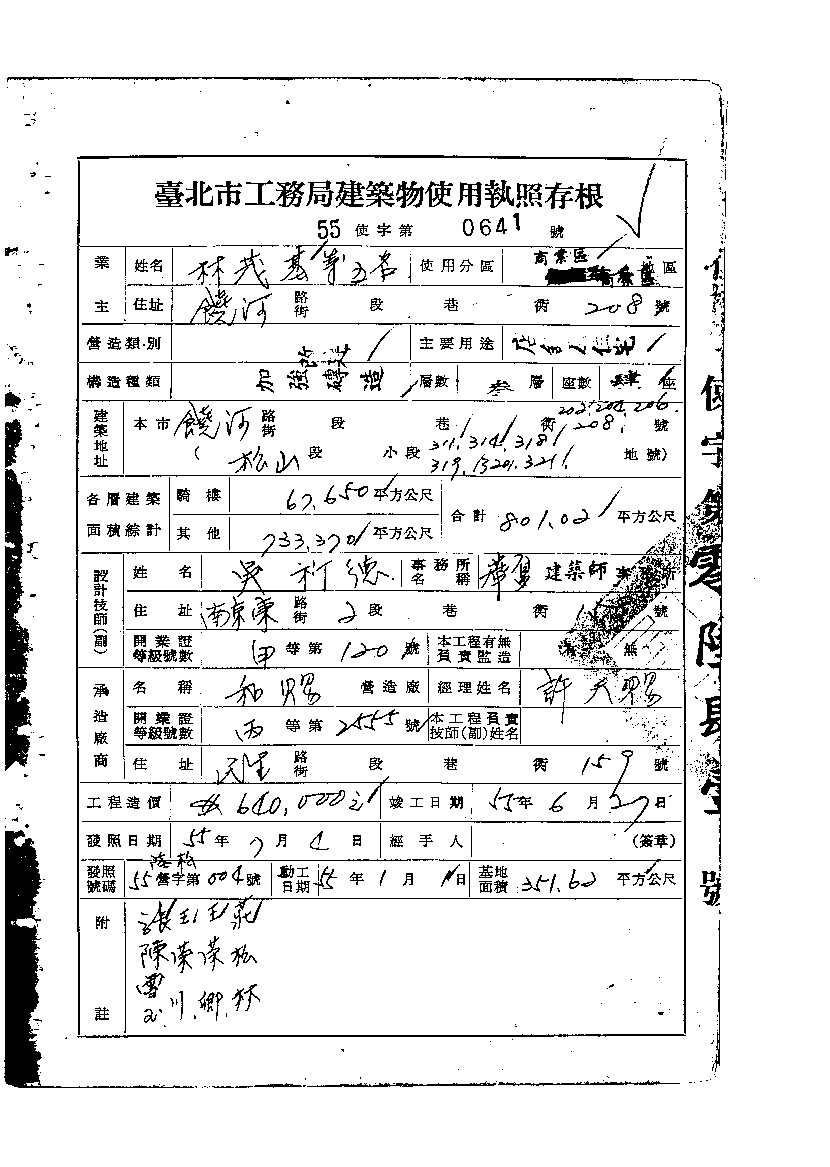 臺北市工務局建築物使用執照存根
55 使字第 0641 號
業主 姓名 林茂基等五名 使用分區 商業區 區
住址 饒河 路街 段 巷 街 208 號
營造類別 主要用途
構造種類 加強磚造 層數 叁層 座數 座
建築地址 本市 饒河 路街 段 巷 街 202.204.206. 208 號
( 松山 段 小段 311.314.318 319.320.321. 地號)
各層建築面積綜計 騎樓 67.650 平方公尺 合計 801.02 平方公尺
其他 733.370 平方公尺
設計技師(副) 姓名 吳 德 事務所名稱 建築師
住址 南京東 路街 2 段 巷 街 號
開業證等級號數 甲 等第 120 號 本工程有無負責監造 無
承造廠商 名稱 和賜 營造廠 經理姓名 許天賜
開業證等級號數 丙 等第 2555 號 本工程負責技師(副)姓名
住址 民生 路街 段 巷 街 159 號
工程造價 640,000元 竣工日期 55年 6月 27日
發照日期 55年 7月 4日 經手人 (簽章)
發照號碼 55 營字第 004 號 動工日期 55年 1月 日 基地面積 351.62 平方公尺
附註
陳榮榮松
川卿林
使字第零陸肆壹號